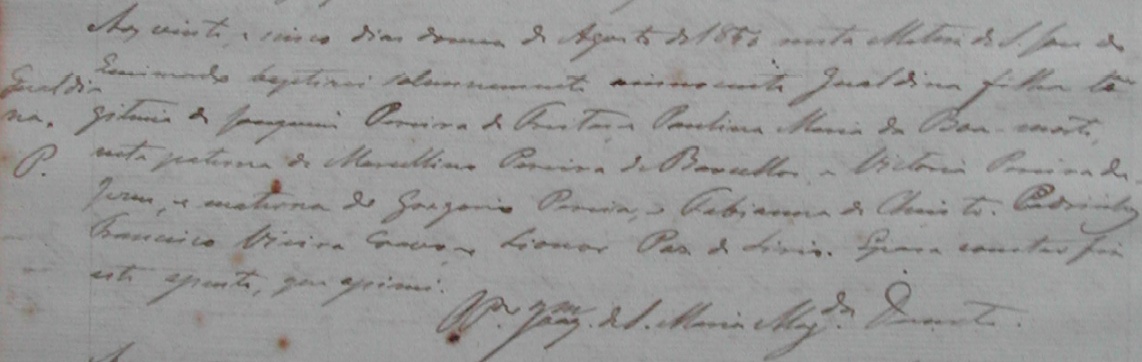 Aos vinte, e cinco dias do mez de Agosto de 186 nesta Matriz de S. Joze do
baptizei solennemente innocente Gualdina filha le
Gualdi
na.
gitima de Joaquim Pereira de Freitas, e Paulina Maria da Boa-morte,
P.
neta paterna de Marcellino Pereira de Barcellos, e Victoria Pereira de
Jesus, e materna de Gregorio Pereira, e Fabianna de Christo. Padrinhos
Francisco Vieira e Lionor Paz de Liris. E para constar fiz
este apento, que apinei.
Pe. Joaqm. de S. Maria Magda. Duarte.